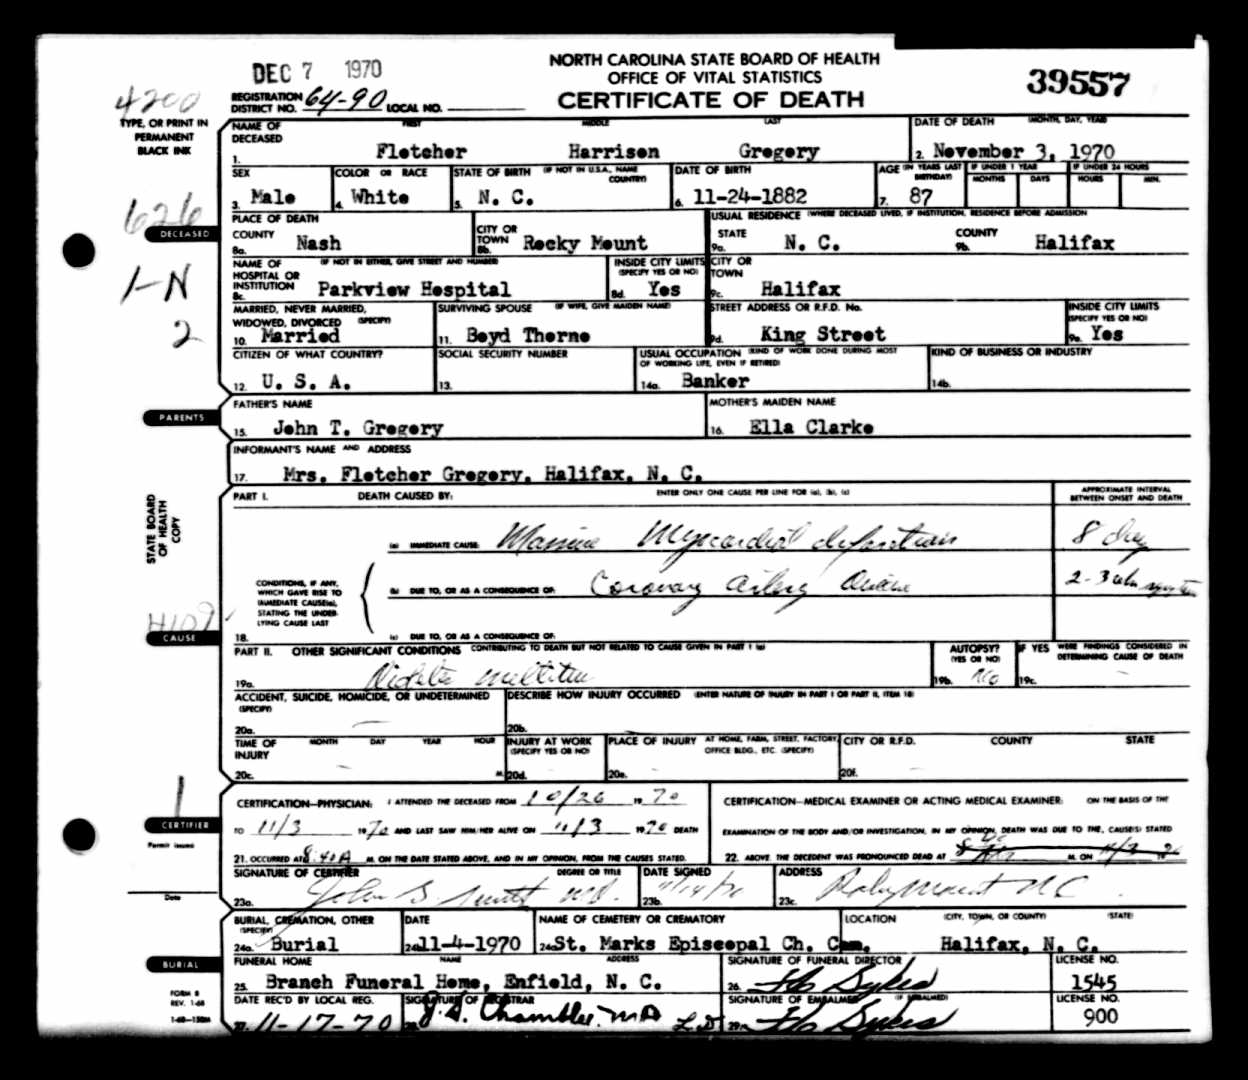 DEC 7 1970
NORTH CAROLINA STATE BOARD OF HEALTH
OFFICE OF VITAL STATISTICS
CERTIFICATE OF DEATH
39557
4200
REGISTRATION DISTRICT NO. 64-90 LOCAL NO.
TYPE, OR PRINT IN PERMANENT BLACK INK
NAME OF DECEASED FIRST MIDDLE LAST DATE OF DEATH (MONTH, DAY, YEAR)
1. Fletcher Harrison Gregory 2. November 3, 1970
SEX COLOR OR RACE STATE OF BIRTH (IF NOT IN U.S.A., NAME COUNTRY) DATE OF BIRTH AGE (IN YEARS LAST BIRTHDAY) IF UNDER 1 YEAR MONTHS DAYS IF UNDER 24 HOURS HOURS MIN.
3. Male 4. White 5. N. C. 6. 11-24-1882 7. 87
626
DECEASED
PLACE OF DEATH USUAL RESIDENCE (WHERE DECEASED LIVED, IF INSTITUTION, RESIDENCE BEFORE ADMISSION
COUNTY CITY OR TOWN STATE COUNTY
8a. Nash 8b. Rocky Mount 9a. N. C. 9b. Halifax
1-N
NAME OF HOSPITAL OR INSTITUTION (IF NOT IN EITHER, GIVE STREET AND NUMBER) INSIDE CITY LIMITS (SPECIFY YES OR NO) CITY OR TOWN
8c. Parkview Hospital 8d. Yes 9c. Halifax
2
MARRIED, NEVER MARRIED, WIDOWED, DIVORCED (SPECIFY) SURVIVING SPOUSE (IF WIFE, GIVE MAIDEN NAME) STREET ADDRESS OR R.F.D. No. INSIDE CITY LIMITS (SPECIFY YES OR NO)
10. Married 11. Boyd Thorne 9d. King Street 9e. Yes
CITIZEN OF WHAT COUNTRY? SOCIAL SECURITY NUMBER USUAL OCCUPATION (KIND OF WORK DONE DURING MOST OF WORKING LIFE, EVEN IF RETIRED) KIND OF BUSINESS OR INDUSTRY
12. U. S. A. 13. 14a. Banker 14b.
PARENTS
FATHER'S NAME MOTHER'S MAIDEN NAME
15. John T. Gregory 16. Ella Clarke
INFORMANT'S NAME AND ADDRESS
17. Mrs. Fletcher Gregory, Halifax, N. C.
STATE BOARD OF HEALTH COPY
PART I. DEATH CAUSED BY: ENTER ONLY ONE CAUSE PER LINE FOR (a), (b), (c) APPROXIMATE INTERVAL BETWEEN ONSET AND DEATH
(a) IMMEDIATE CAUSE: Massive Myocardial Infarction 8 days
CONDITIONS, IF ANY, WHICH GAVE RISE TO IMMEDIATE CAUSE(a), STATING THE UNDERLYING CAUSE LAST
(b) DUE TO, OR AS A CONSEQUENCE OF: Coronary Artery Disease 2-3
H109
CAUSE
18. (c) DUE TO, OR AS A CONSEQUENCE OF:
PART II. OTHER SIGNIFICANT CONDITIONS CONTRIBUTING TO DEATH BUT NOT RELATED TO CAUSE GIVEN IN PART I (a) AUTOPSY? (YES OR NO) IF YES WERE FINDINGS CONSIDERED IN DETERMINING CAUSE OF DEATH
19a. Diabetes mellitus 19b. No 19c. -
ACCIDENT, SUICIDE, HOMICIDE, OR UNDETERMINED (SPECIFY) DESCRIBE HOW INJURY OCCURRED (ENTER NATURE OF INJURY IN PART I OR PART II, ITEM 18)
20a. 20b.
TIME OF INJURY MONTH DAY YEAR HOUR INJURY AT WORK (SPECIFY YES OR NO) PLACE OF INJURY AT HOME, FARM, STREET, FACTORY, OFFICE BLDG., ETC. (SPECIFY) CITY OR R.F.D. COUNTY STATE
20c. M. 20d. 20e. 20f.
1
CERTIFIER
Permit issued
Date
CERTIFICATION—PHYSICIAN: I ATTENDED THE DECEASED FROM 10/26 1970
TO 11/3 1970 AND LAST SAW HIM/HER ALIVE ON 11/3 1970 DEATH
21. OCCURRED AT 8:40A M. ON THE DATE STATED ABOVE, AND IN MY OPINION, FROM THE CAUSES STATED.
CERTIFICATION—MEDICAL EXAMINER OR ACTING MEDICAL EXAMINER: ON THE BASIS OF THE
EXAMINATION OF THE BODY AND/OR INVESTIGATION, IN MY OPINION, DEATH WAS DUE TO THE, CAUSE(S) STATED
22. ABOVE. THE DECEDENT WAS PRONOUNCED DEAD AT M. ON 11/3 19
SIGNATURE OF CERTIFIER DEGREE OR TITLE DATE SIGNED ADDRESS
23a. John MD. 23b. 23c. Rocky Mount NC
BURIAL, CREMATION, OTHER (SPECIFY) DATE NAME OF CEMETERY OR CREMATORY LOCATION (CITY, TOWN, OR COUNTY) (STATE)
24a. Burial 24b. 11-4-1970 24c. St. Marks Episcopal Ch. Cem. Halifax, N. C.
BURIAL
FUNERAL HOME NAME ADDRESS SIGNATURE OF FUNERAL DIRECTOR LICENSE NO.
25. Branch Funeral Home, Enfield, N. C. 26. Sykes 1545
FORM 8
REV. 1-68
1-68—150M
DATE REC'D BY LOCAL REG. SIGNATURE OF REGISTRAR SIGNATURE OF EMBALMER (IF EMBALMED) LICENSE NO.
27. 11-17-70 28. J. S. Chamblee, MD 29. Sykes 900